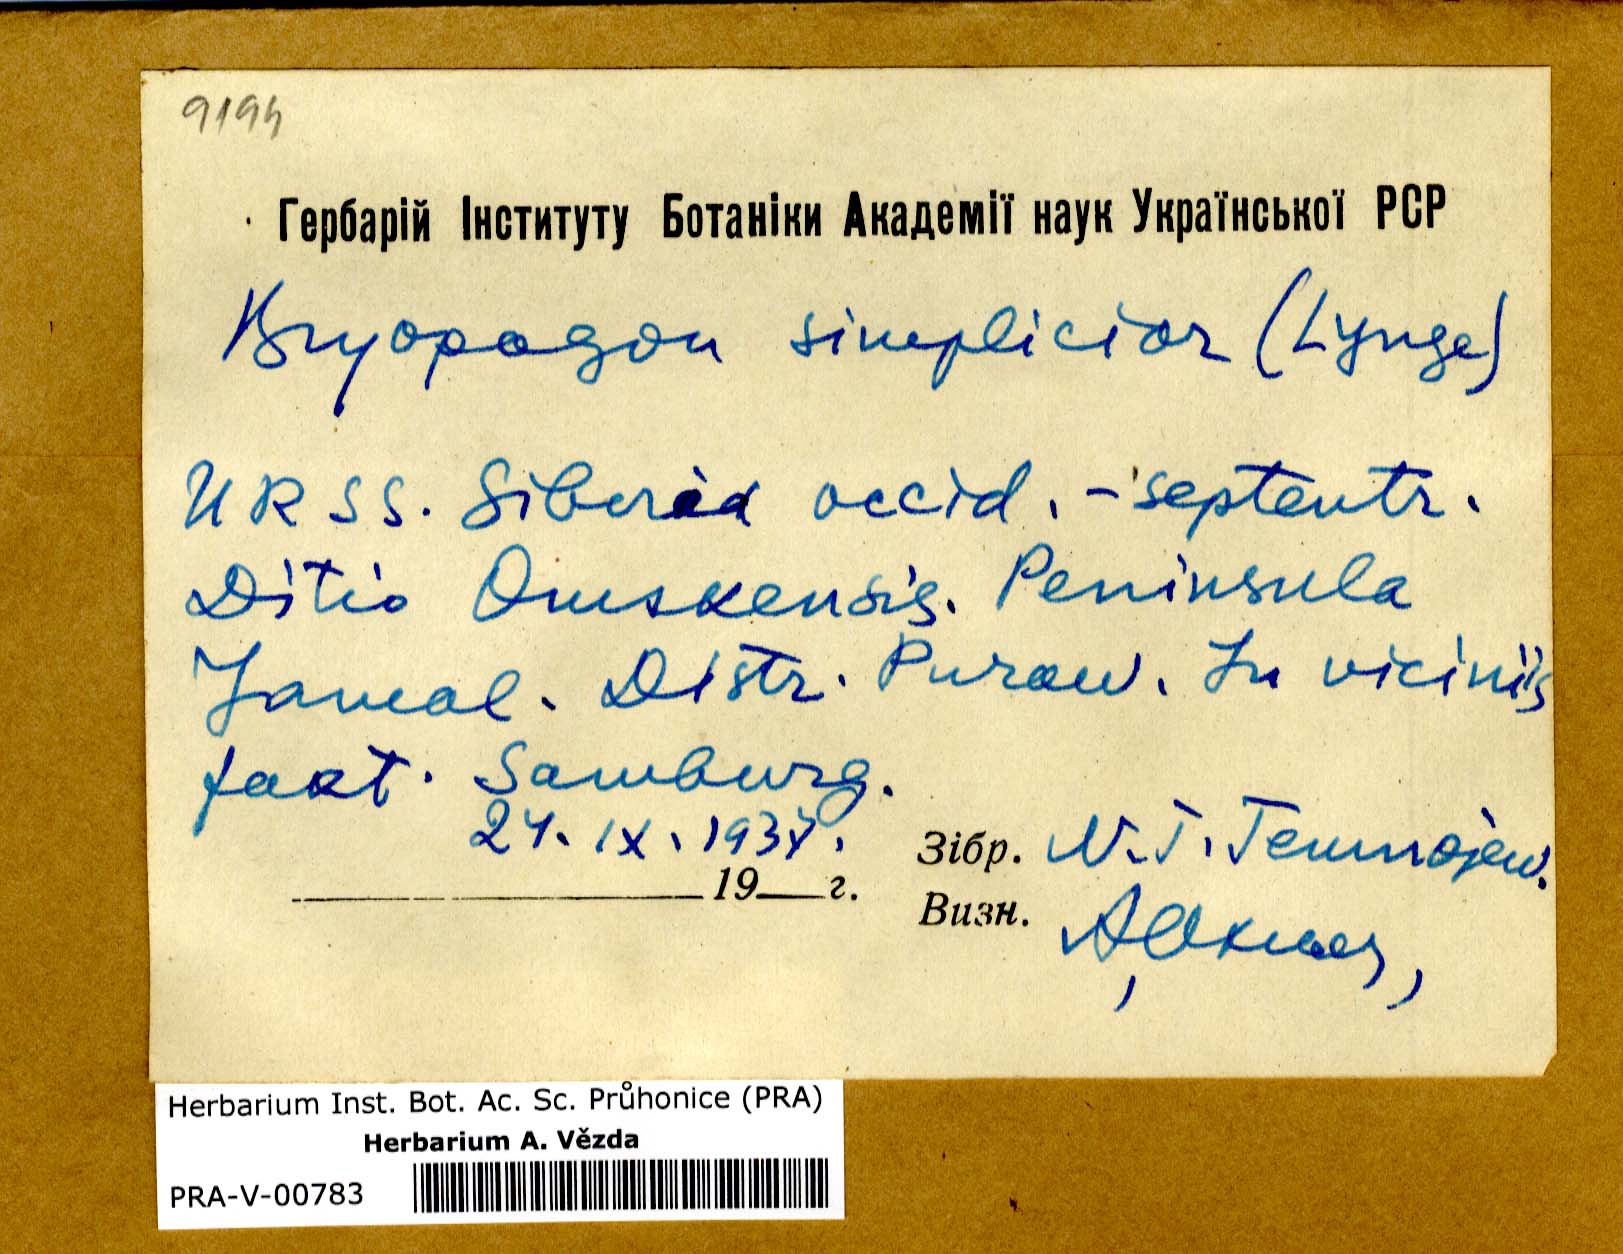 9194
Гербарій Інституту Ботаніки Академії наук Української РСР
Bryopogon simplicior (Lynge)
URSS. Siberia occid. - septentr.
Ditio Omskensis. Peninsula
Jamal. Distr. Purow. In viciniis
fakt. Samburg.
24. IX. 1937.
Зібр. N. T.
19 г.
Визн. A. Oxner
Herbarium Inst. Bot. Ac. Sc. Průhonice (PRA)
Herbarium A. Vězda
PRA-V-00783